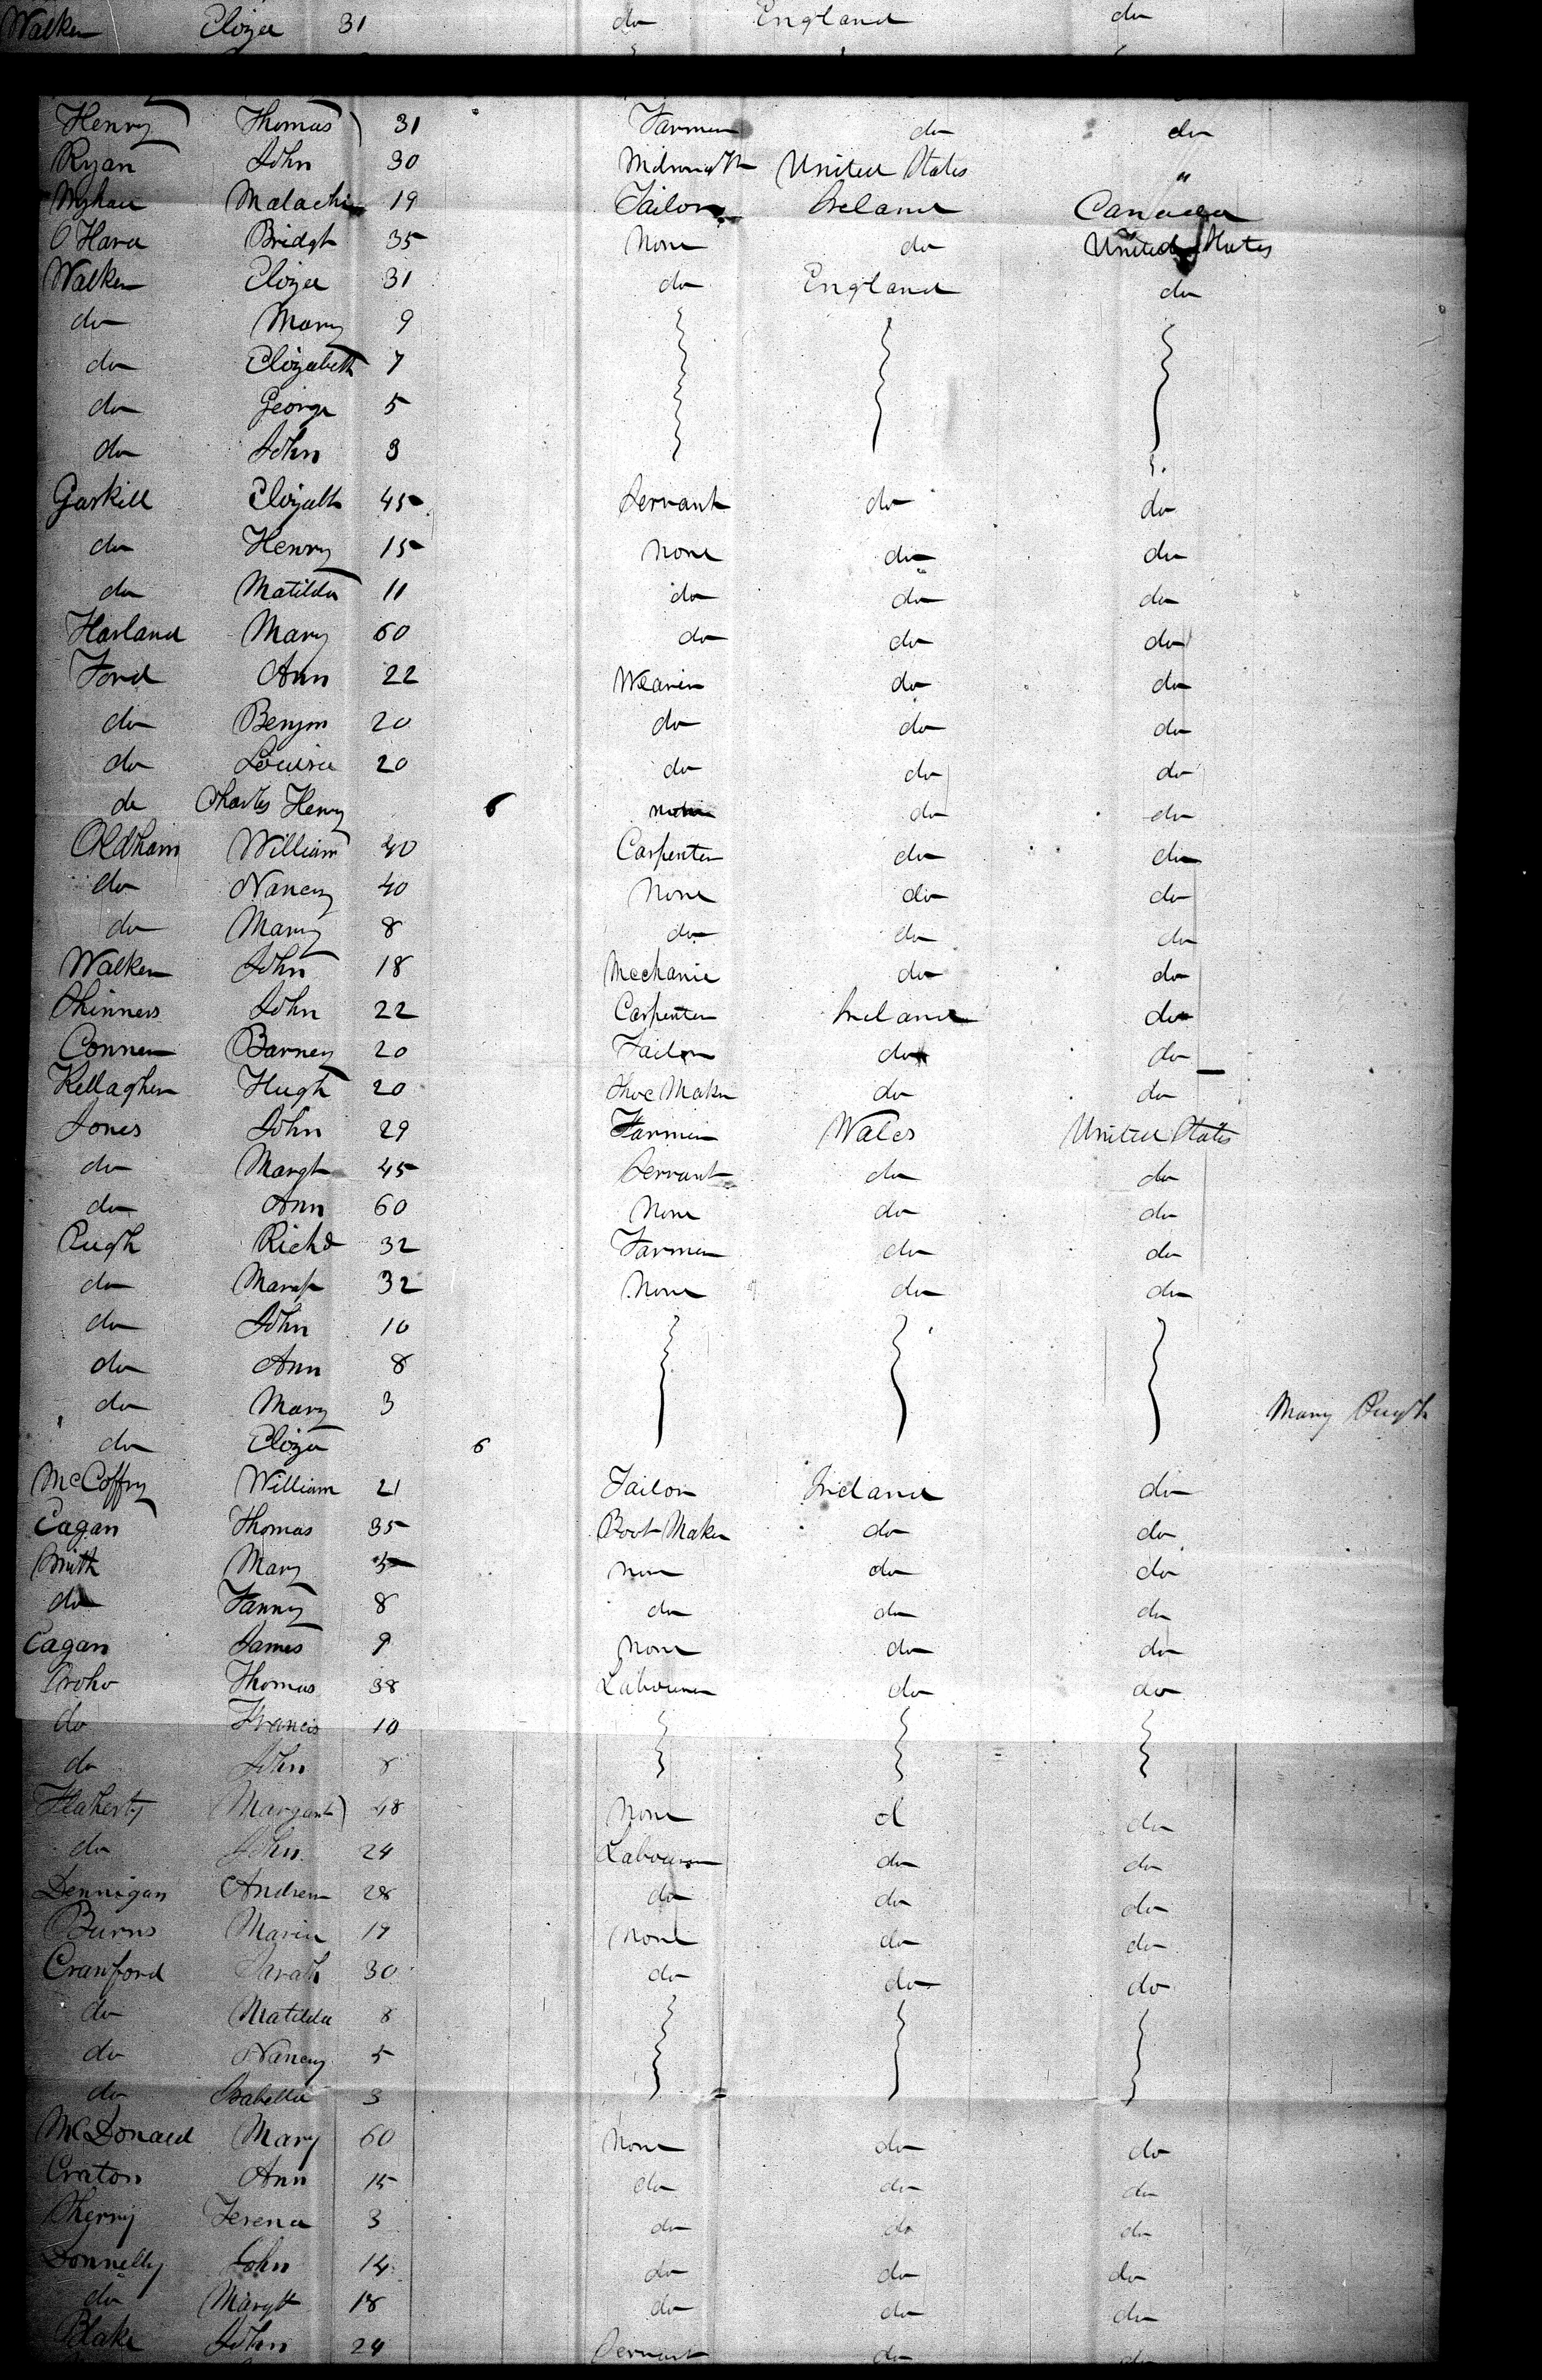 Walker Eliza 31 do England do
Henry Thomas 31 Farmer do do
Ryan John 30 United States "
Malachi 19 Tailor Ireland Canada
O Hara Bridgt 35 None do United States
Walker Eliza 31 do England do
do Mary 9
do Elizabeth 7
do George 5
do John 3
Gaskill Elizath 45 Servant do do
do Henry 15 None do do
do Matilda 11 do do do
Harland Mary 60 do do do
Ford Ann 22 Weaver do do
do Benjm 20 do do do
do Louisa 20 do do do
do Charles Henry 6 none do do
Oldham William 40 Carpenter do do
do Nancy 40 None do do
do Mary 8 do do do
Walker John 18 Mechanic do do
Skinners John 22 Carpenter Ireland do
Conner Barney 20 Tailor do do
Kellagher Hugh 20 Shoe Maker do do
Jones John 29 Farmer Wales United States
do Margt 45 Servant do do
do Ann 60 None do do
Pugh Richd 32 Farmer do do
do Margt 32 None do do
do John 10
do Ann 8
do Mary 3 Mary Pugh
do Eliza 6
McCoffry William 21 Tailor Ireland do
Eagan Thomas 35 Boot Maker do do
Smith Mary None do do
do Fanny 8 do do do
Eagan James 9 None do do
Thomas 38 Labourer do do
do Francis 10
do John 8
Flaherty Margaret 48 None d do
do John 24 Labourer do do
Dennigan Andrew 28 do do do
Burns Maria 17 None do do
Crawford Sarah 30 do do do
do Matilda 8
do Nancy 5
do Isabella 3
McDonald Mary 60 None do do
Craton Ann 15 do do do
Sherry Terena 3 do do do
Donnelly John 14 do do do
do Margt 18 do do do
Blake John 24 Servant do do